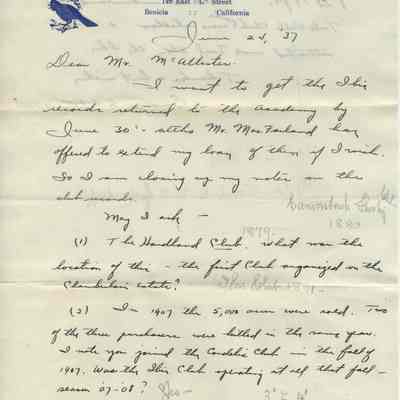 East "L" Street
Benicia :: California
June 25, '37
Dear Mr. McAllister:
I want to get the Ibis
records returned to the Academy by
June 30 - altho Mr. MacFarland has
offered to extend my loan of them if I wish.
So I am closing up my notes on the
club records.
May I ask -
1880
1879.
(1) The Hardland Club. what was the
location of this - the first Club organized on the
Chamberlain estate?
(2) In 1907 the 5,000 acres were sold. Two
of the three purchasers were killed in the same year.
I note you joined the Cordelia Club in the fall of
1907. Was the Ibis Club operating at all that fall -
season '07-08? Yes -